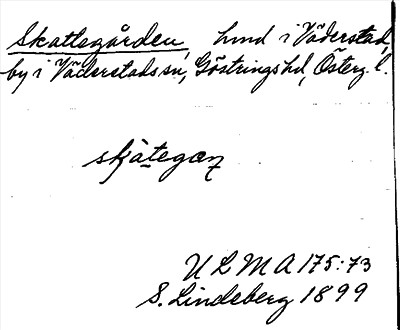 Skattegården, hmd i Väderstad,
by i Väderstads sn, Göstrings hd, Österg. l.
skȧtegaɲ
U L M A 175:73
S. Lindeberg 1899